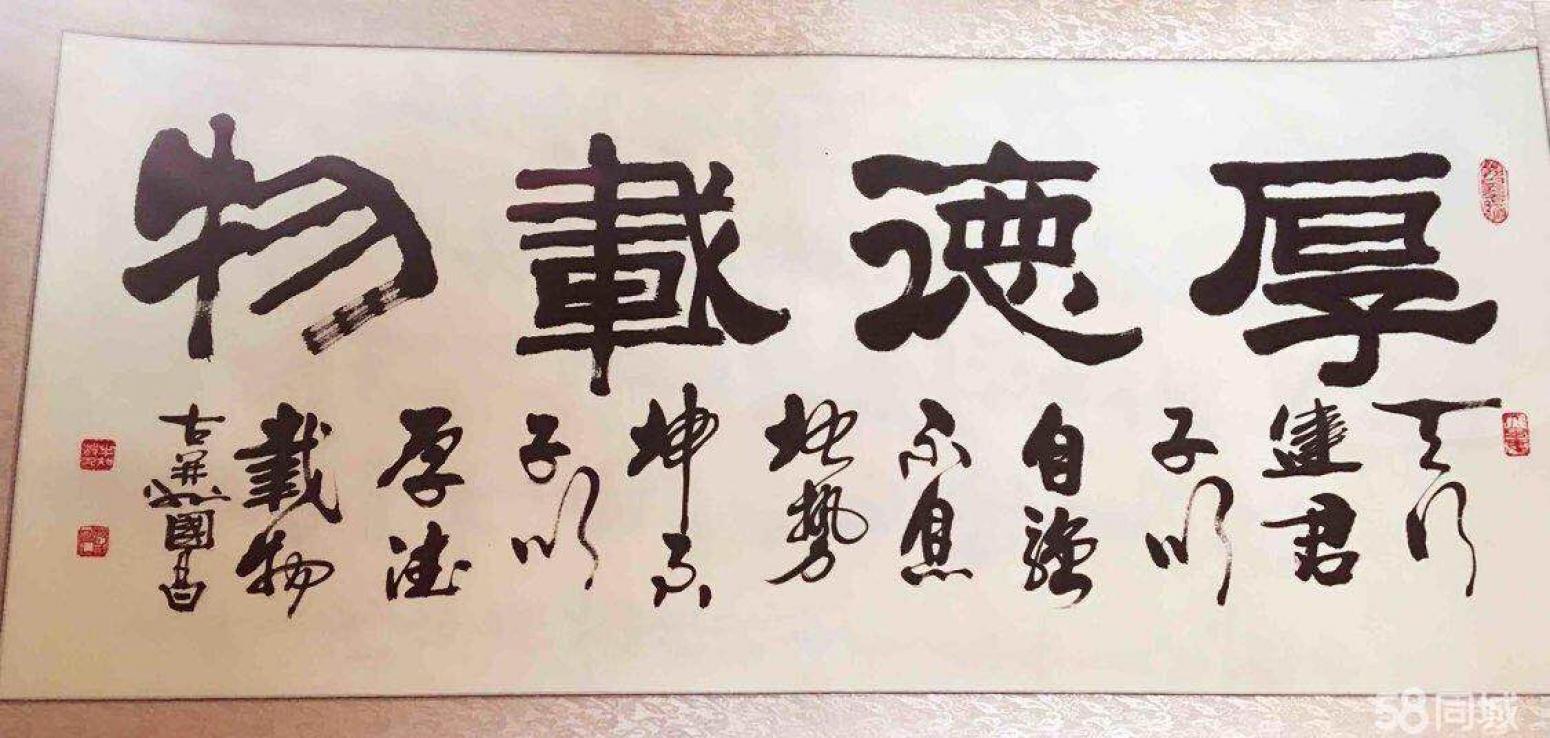 厚德載物
天行
健君
子以
自強
不息
地勢
坤君
子以
厚德
載物
古 國昌
58同城